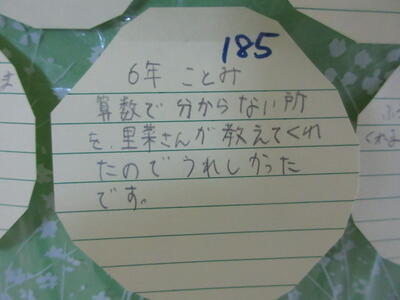 185
6年 ことみ
算数で分からない所
を、里菜さんが教えてくれ
たのでうれしかった
です。